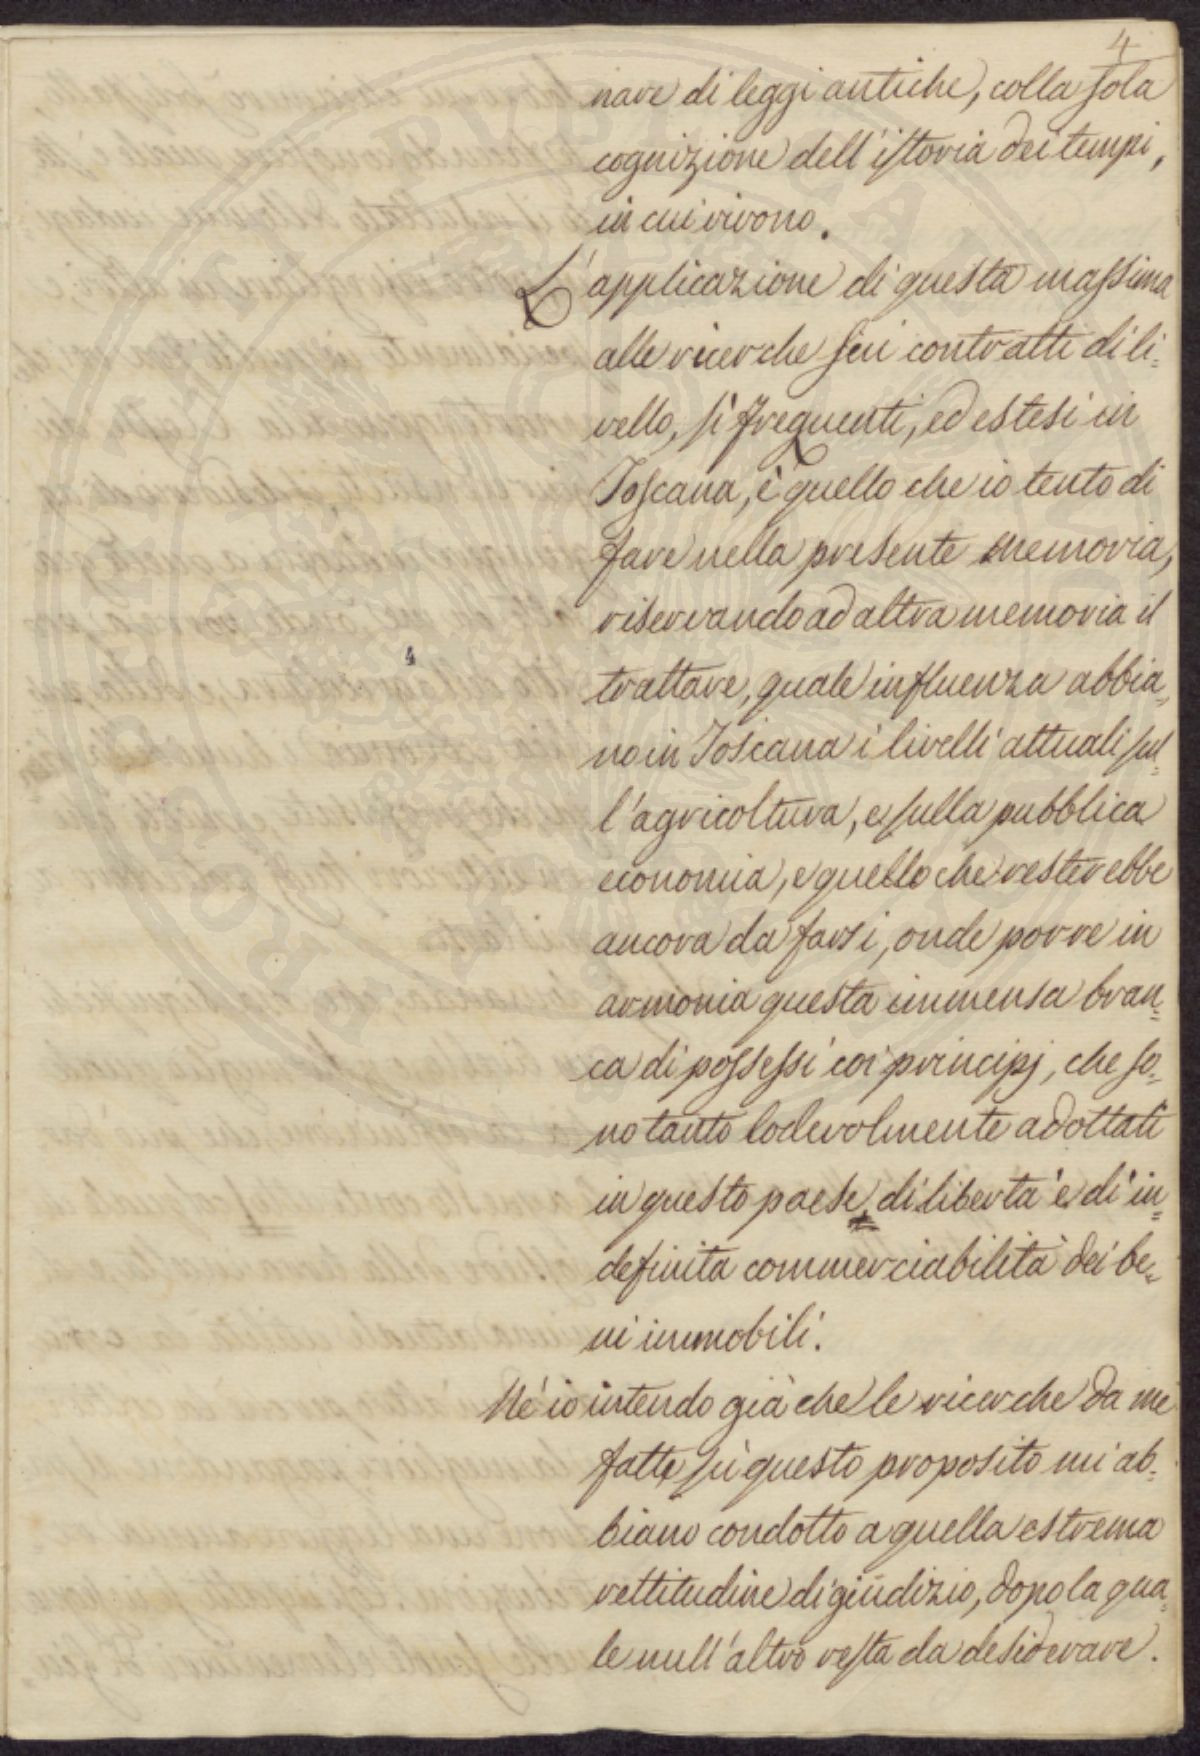 4
nare di leggi antiche, colla sola
cognizione dell'istoria dei tempi,
in cui vivono.
L'applicazione di questa massima
alle ricerche sui contratti di li=
vello, sì frequenti, ed estesi in
Toscana, è quello che io tento di
fare nella presente memoria,
riservando ad altra memoria il
trattare, quale influenza abbia=
no in Toscana i livelli attuali sul=
l'agricoltura, e sulla pubblica
economia, e quello che resterebbe
ancora da farsi, onde porre in
armonia questa immensa bran=
ca di possessi coi principj, che so=
no tanto lodevolmente adottati
in questo paese, di libertà e di in=
definita commerciabilità dei be=
ni immobili.
Né io intendo già che le ricerche da me
fatte su questo proposito mi ab=
biano condotto a quella estrema
rettitudine di giudizio, dopo la qua=
le null'altro resta da desiderare.
4